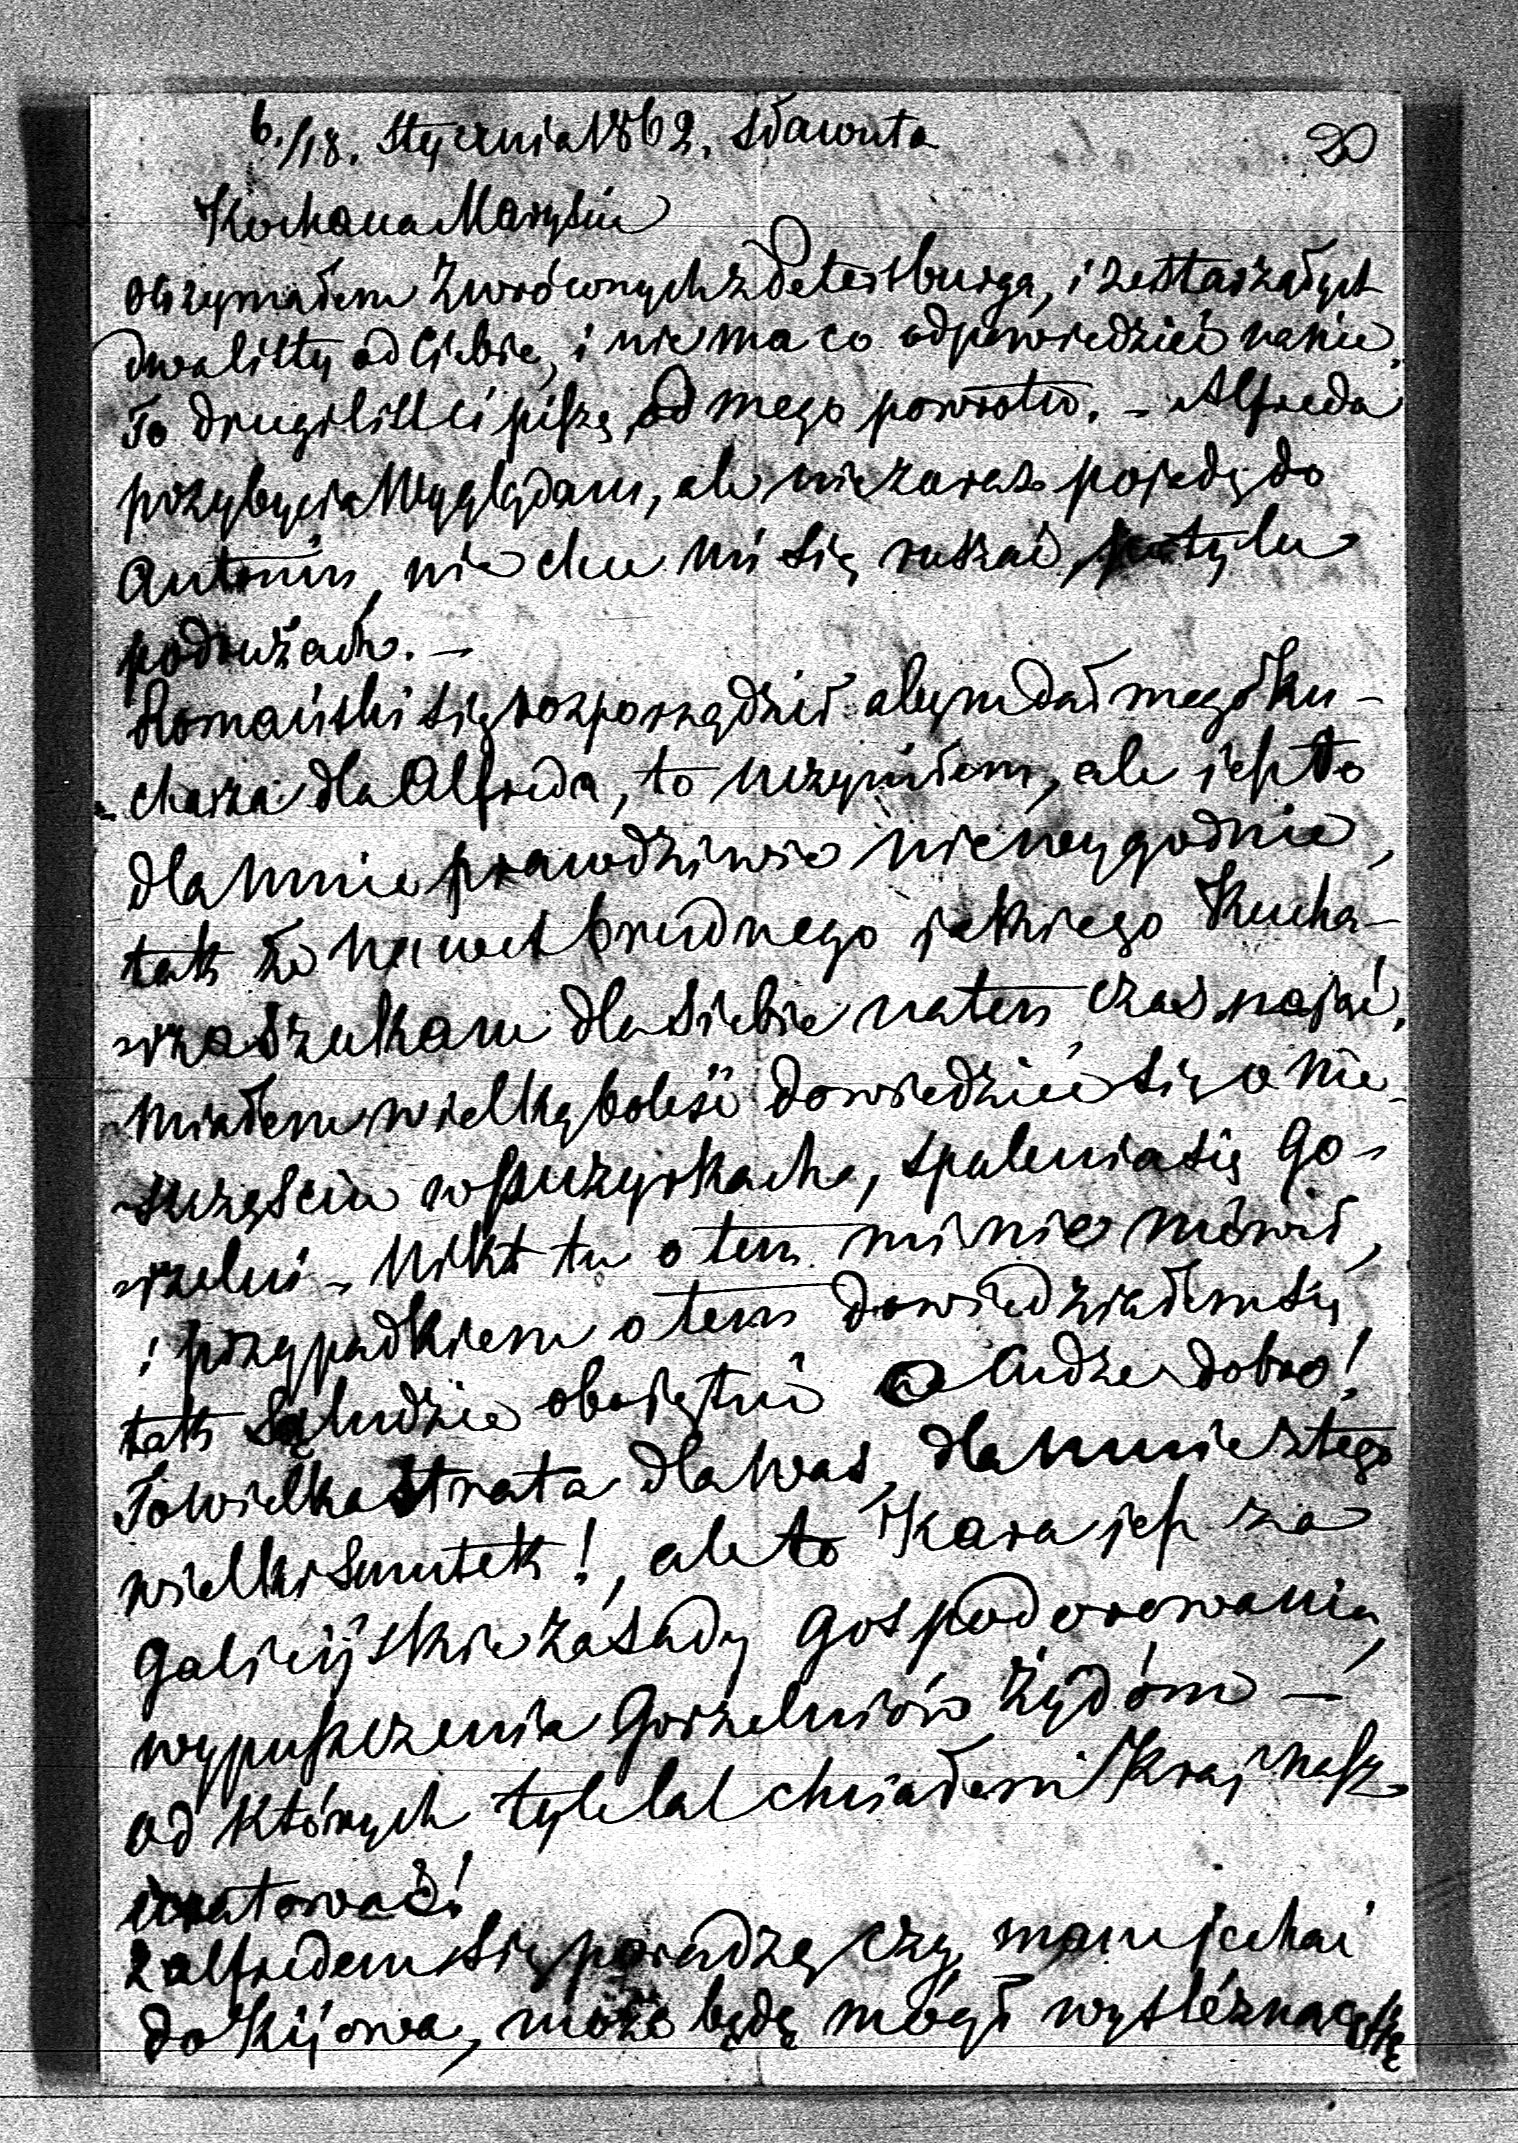 6./18. Stycznia 1862. Sławuta
20
Kochana Marysiu
otrzymałem zwróconych z Petersburga, i zestarzałych
dwa listy od Ciebie, i nie ma co odpowiedzieć na nie.
To drugi list ci piszę, od mego powrotu. - Alfreda
przybycia wyglądam, ale nie zaraz pojedę do
Antonin, nie chce mi się ruszać po tylu
podróżach. -
Romański się rozporządził abym dał mego ku-
-charza dla Alfreda, to uczyniłem, ale jest to
dla mnie prawdziwie niewygodnie,
tak że nawet brudnego jakiego kucha-
-rza szukam dla siebie na ten czas nająć.
miałem wielką boleść dowiedzieć się o nie-
-szczęściu w Puzyrkach, spalenia się Go-
-rzelni - Nikt tu o tem mi nie mówił,
i przypadkiem o tem dowiedziałem się
tak są ludzie obojętni o cudze dobro!
To wielka strata dla was, dla mnie z tego
wielki smutek!, ale to Kara jest za
Galicijskie zasady gospodarowania,
wypuszczenia Gorzelniów Żydóm -
od których tyle lat chciałem Kraj nasz
uratować!
z alfredem się poradzę czy mam jechać
do Kijowa, może będę mógł wyśliznąć się